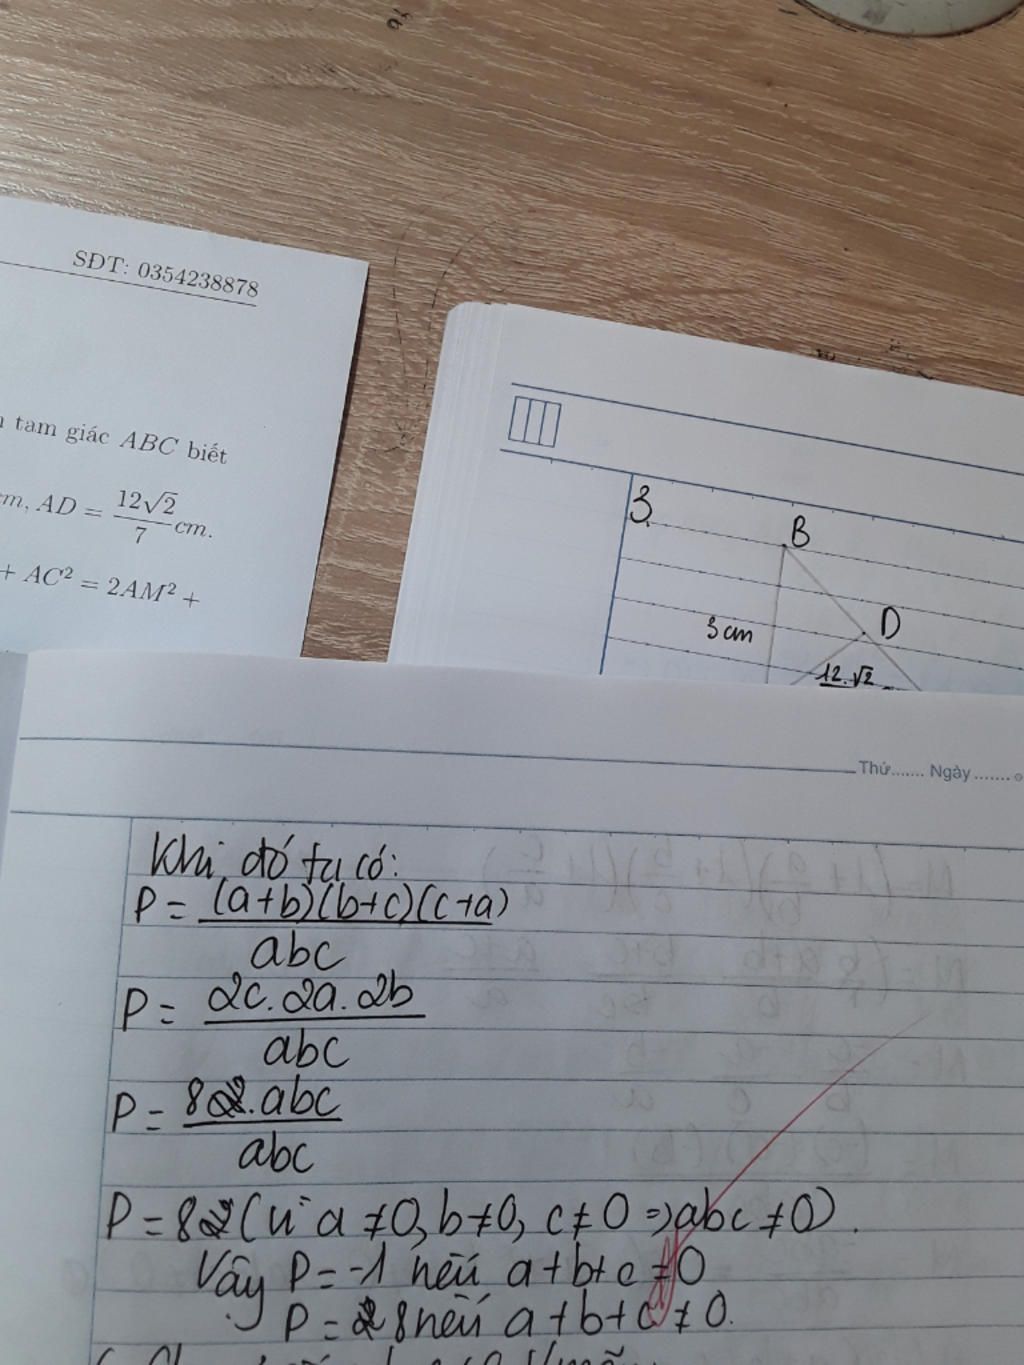 SĐT: 0354238878
tam giác ABC biết
cm, AD = 12√2/7 cm.
+ AC² = 2AM² +
3.
B
D
3 cm
12.√2
Thứ....... Ngày.......
Khi đó ta có:
P = (a+b)(b+c)(c+a)
abc
P = 2c.2a.2b
abc
P = 8.abc
abc
P = 8 (vì a ≠ 0, b ≠ 0, c ≠ 0 => abc ≠ 0).
Vậy P = -1 nếu a+b+c = 0
P = 8 nếu a+b+c ≠ 0.